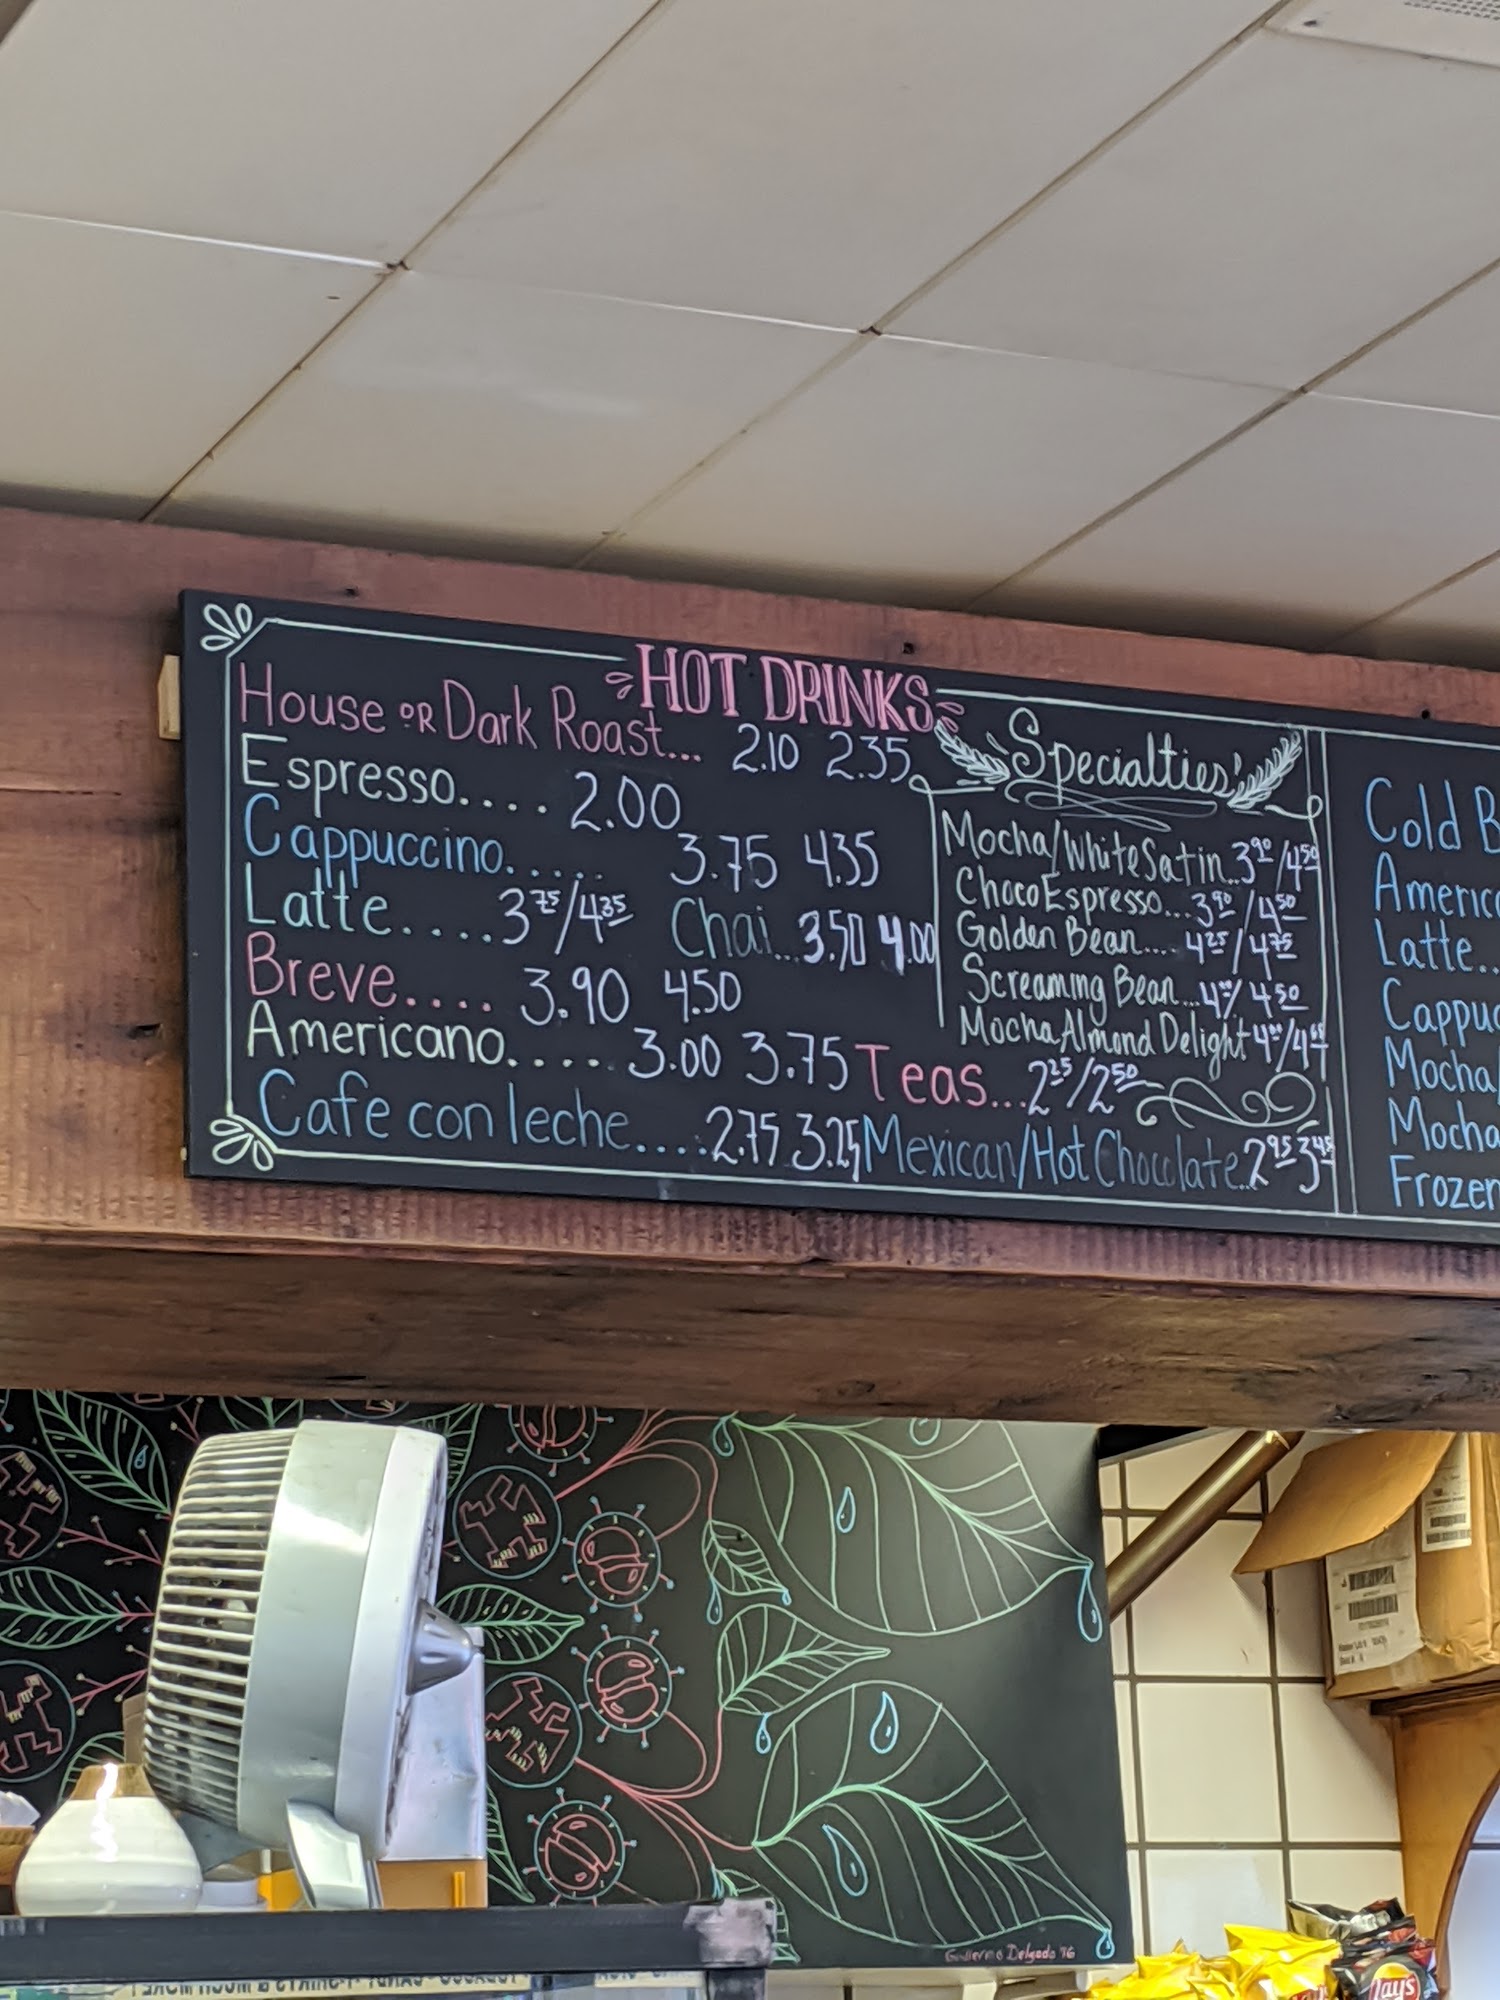 HOT DRINKS
House OR Dark Roast... 2.10 2.35
Espresso.... 2.00
Cappuccino..... 3.75 4.35
Latte.... 3.75/4.35 Chai... 3.50 4.00
Breve.... 3.90 4.50
Americano.... 3.00 3.75
Cafe con leche.... 2.75 3.25
Specialties
Mocha/White Satin.. 3.90/4.50
Choco Espresso... 3.90/4.50
Golden Bean.... 4.25/4.75
Screaming Bean... 4.00/4.50
Mocha Almond Delight
Teas... 2.25/2.50
Mexican/Hot Chocolate.. 2.95 3.45
Cold B
Americ
Latte..
Cappuc
Mocha/
Mocha
Frozen
Guillermo Delgado '16
Lays